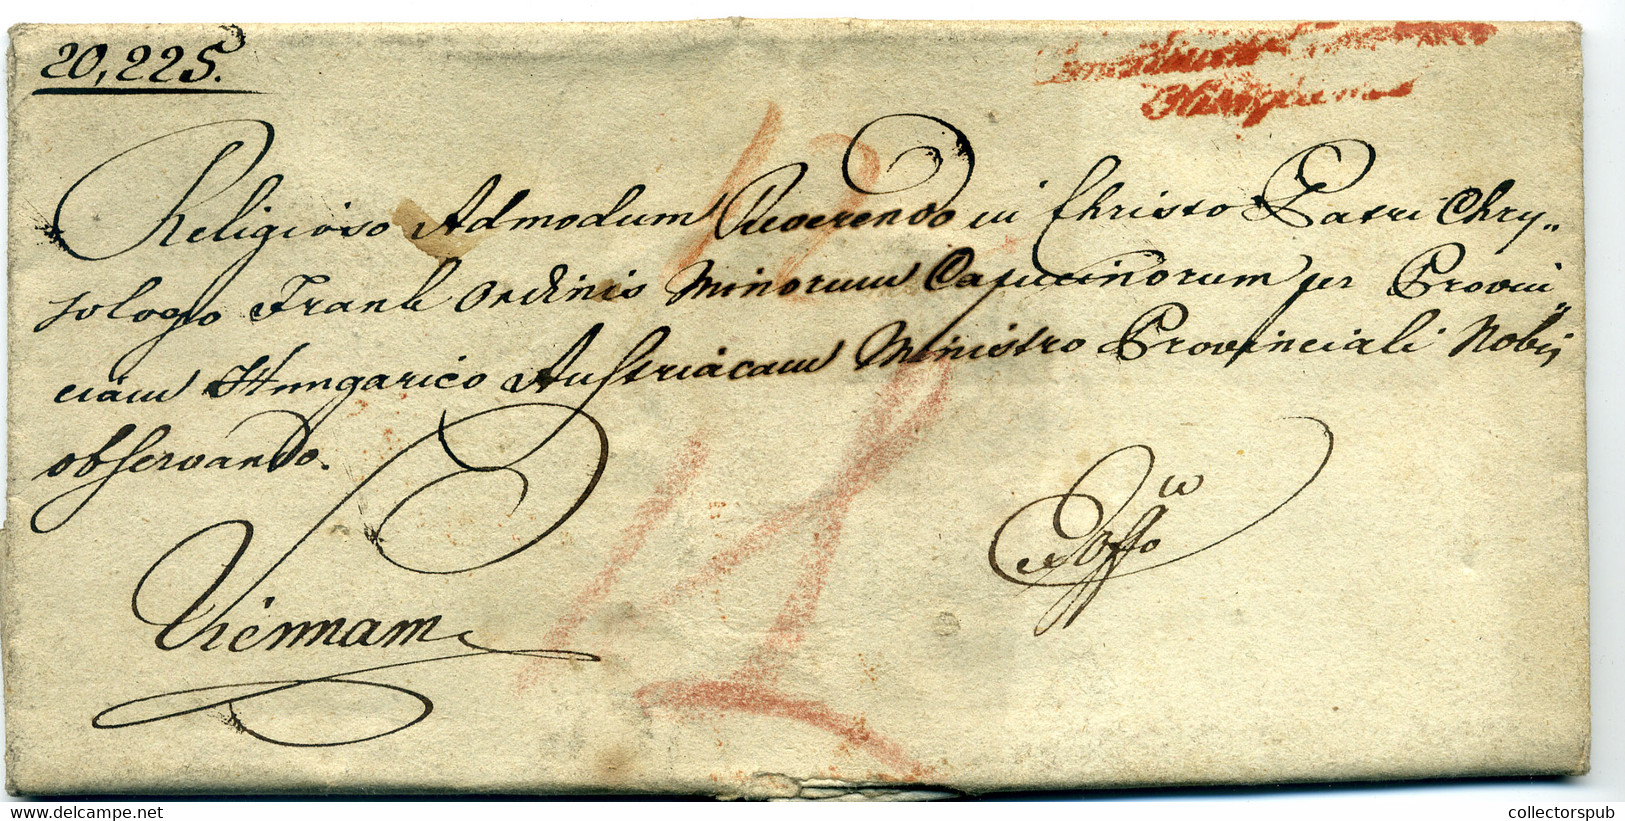 20,225.
Religioso Admodum Reverendo in Christo Patri Chry„
sologo Frank Ordinis Minorum Capucinorum per Provin„
ciam Hungarico Austriacam Ministro Provinciali Nobis
observando.
ex Offo
Viennam
12
collectorspub